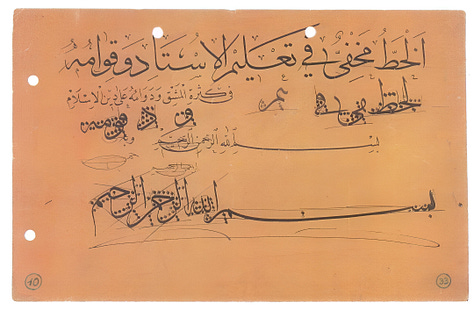 اَلْخَطُّ مَخْفِىٌّ فِي تَعْلِيْمِ الْاُسْتَاذِ وَقِوَامُهُ
فِي كَثْرَةِ الْمَشْقِ وَدَوَامُهُ عَلَى دِيْنِ الْاِسْلَامِ
بسم الله الرحمن الرحيم
بسم الله الرحمن الرحيم
10 33